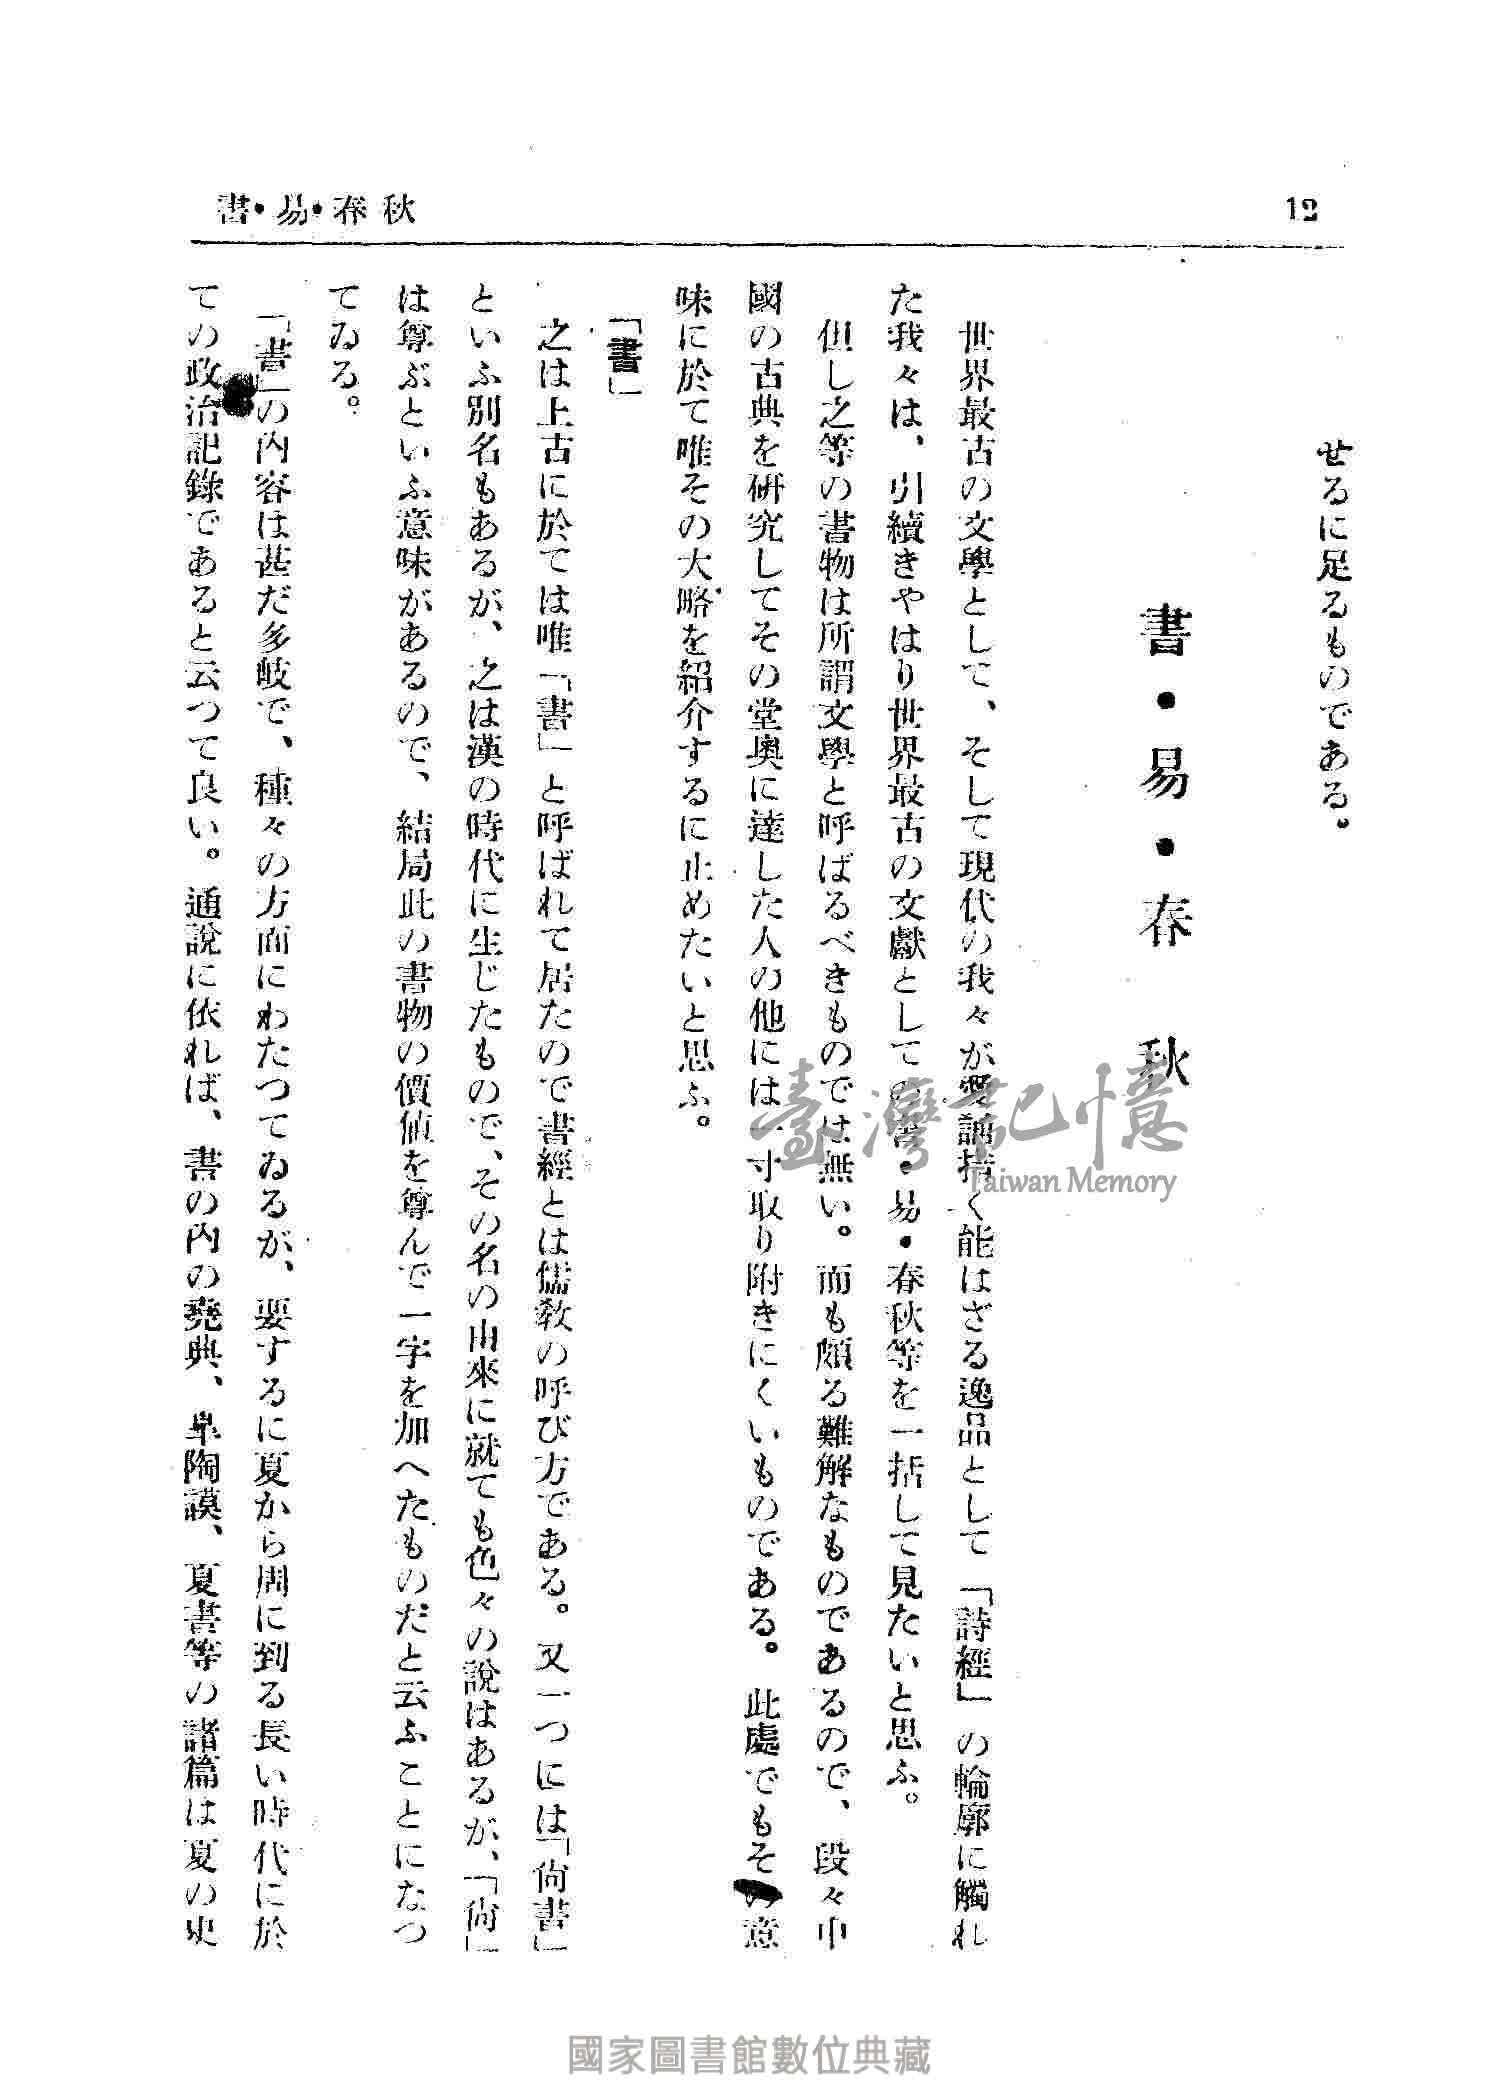 書・易・春秋
12
せるに足るものである。
書・易・春秋
世界最古の文學として、そして現代の我々が愛誦措く能はざる逸品として「詩經」の輪廓に觸れ
た我々は、引續きやはり世界最古の文獻としての書・易・春秋等を一括して見たいと思ふ。
但し之等の書物は所謂文學と呼ばるべきものでは無い。而も頗る難解なものであるので、段々中
國の古典を研究してその堂奥に達した人の他には一寸取り附きにくいものである。此處でもその意
味に於て唯その大略を紹介するに止めたいと思ふ。
「書」
之は上古に於ては唯「書」と呼ばれて居たので書經とは儒教の呼び方である。又一つには「尙書」
といふ別名もあるが、之は漢の時代に生じたもので、その名の由來に就ても色々の說はあるが、「尙」
は尊ぶといふ意味があるので、結局此の書物の價値を尊んで一字を加へたものだと云ふことになつ
てゐる。
「書」の內容は甚だ多岐で、種々の方面にわたつてゐるが、要するに夏から周に到る長い時代に於
ての政治記錄であると云つて良い。通說に依れば、書の內の堯典、皐陶謨、夏書等の諸篇は夏の史
臺灣記憶
Taiwan Memory
國家圖書館數位典藏